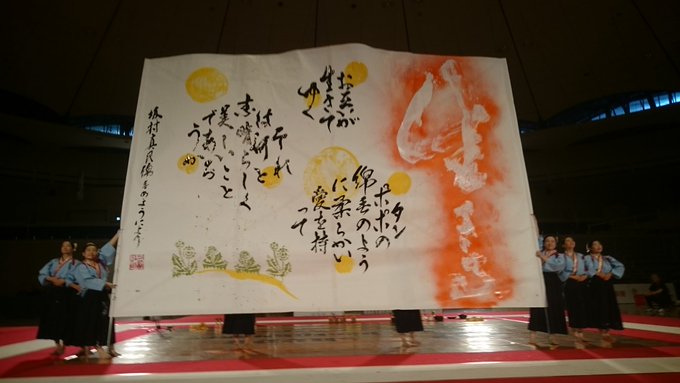 タン
ポポの
綿毛のよう
に柔らかい
愛を持
って
お互いが
生きて
ゆく
それ
は何と
素晴らしく
美しいこと
であろ
うか
坂村真民 綿毛のように より